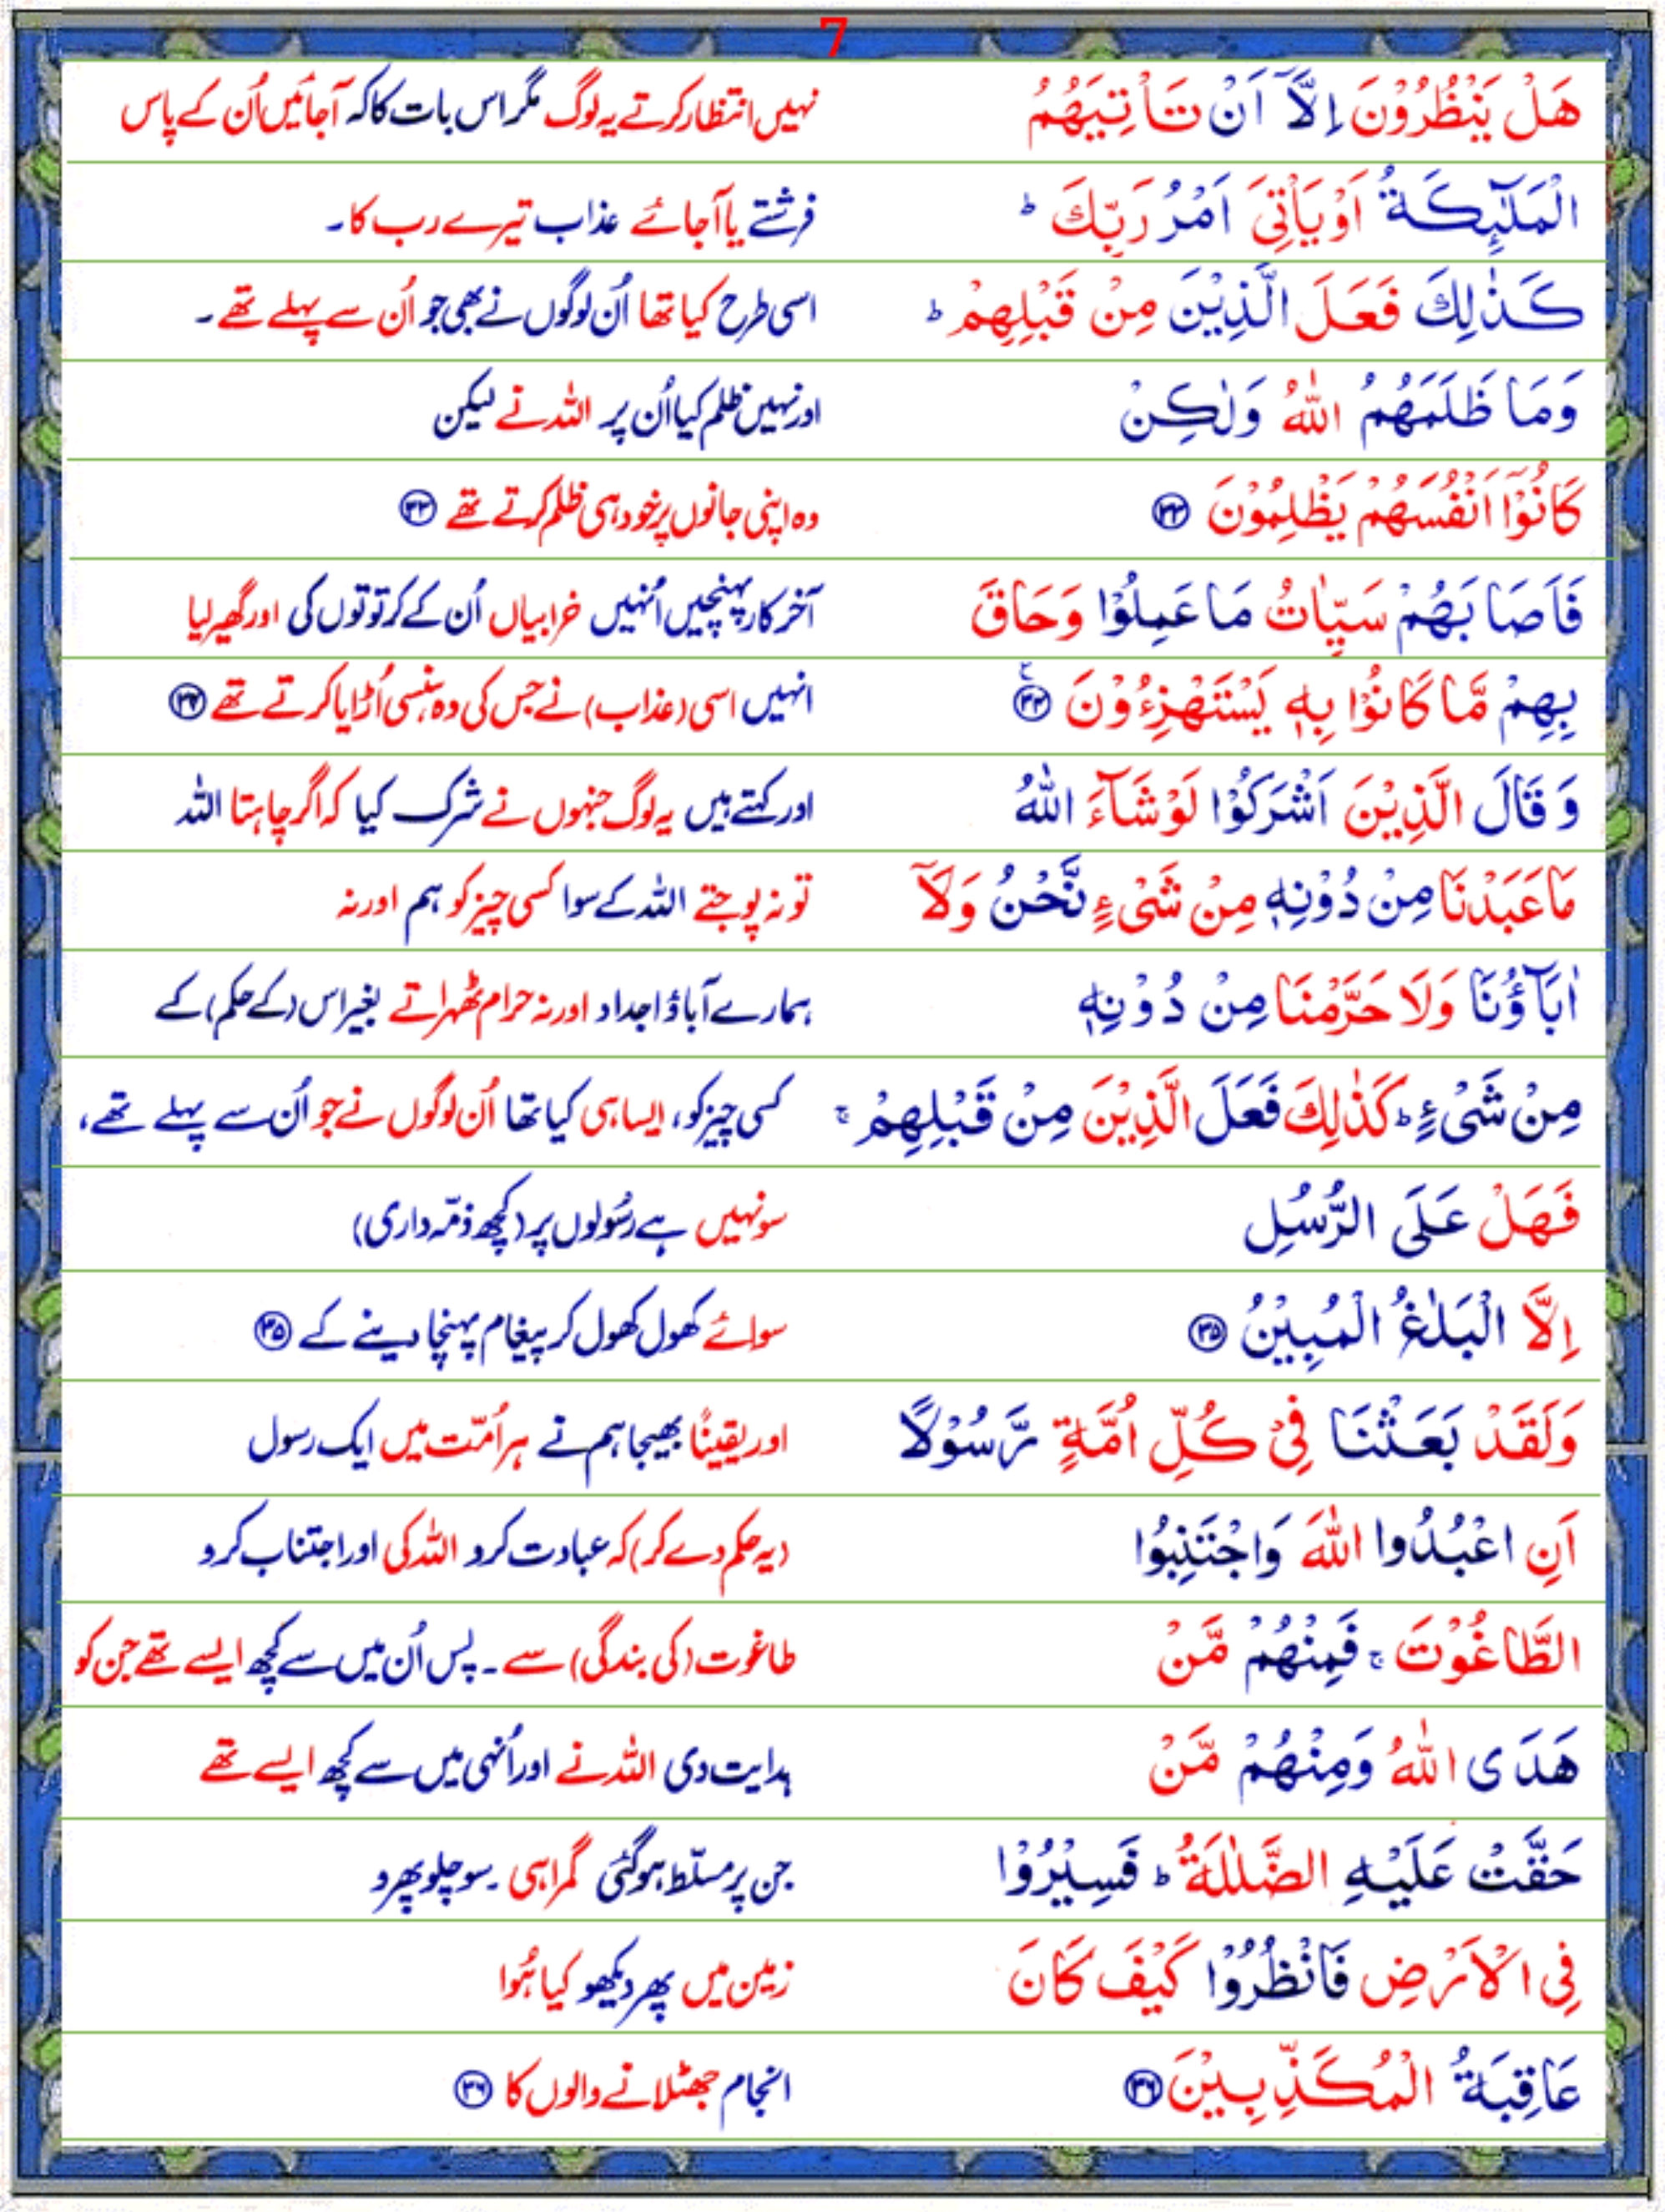 7
هَلْ يَنْظُرُوْنَ اِلَّاۤ اَنْ تَاْتِيَهُمُ نہیں انتظار کرتے یہ لوگ مگر اس بات کا کہ آجائیں اُن کے پاس
الْمَلٰٓئِكَةُ اَوْ يَاْتِيَ اَمْرُ رَبِّكَ ؕ فرشتے یا آجائے عذاب تیرے رب کا۔
كَذٰلِكَ فَعَلَ الَّذِيْنَ مِنْ قَبْلِهِمْ ؕ اسی طرح کیا تھا اُن لوگوں نے بھی جو اُن سے پہلے تھے ۔
وَمَا ظَلَمَهُمُ اللّٰهُ وَلٰكِنْ اور نہیں ظلم کیا اُن پر اللہ نے لیکن
كَانُوْۤا اَنْفُسَهُمْ يَظْلِمُوْنَ ۳۳ وہ اپنی جانوں پر خود ہی ظلم کرتے تھے ۳۳
فَاَصَابَهُمْ سَيِّاٰتُ مَا عَمِلُوْا وَحَاقَ آخر کار پہنچیں اُنہیں خرابیاں اُن کے کرتوتوں کی اور گھیر لیا
بِهِمْ مَّا كَانُوْا بِهٖ يَسْتَهْزِءُوْنَ ۳۴ ع انہیں اسی (عذاب) نے جس کی وہ ہنسی اُڑایا کرتے تھے ۳۴
وَ قَالَ الَّذِيْنَ اَشْرَكُوْا لَوْ شَآءَ اللّٰهُ اور کہتے ہیں یہ لوگ جنہوں نے شرک کیا کہ اگر چاہتا اللہ
مَا عَبَدْنَا مِنْ دُوْنِهٖ مِنْ شَیْءٍ نَّحْنُ وَلَاۤ تو نہ پوجتے اللہ کے سوا کسی چیز کو ہم اور نہ
اٰبَآؤُنَا وَلَا حَرَّمْنَا مِنْ دُوْنِهٖ ہمارے آباؤ اجداد اور نہ حرام ٹھہراتے بغیر اس (کے حکم) کے
مِنْ شَیْءٍ ؕ كَذٰلِكَ فَعَلَ الَّذِيْنَ مِنْ قَبْلِهِمْ ۚ کسی چیز کو، ایسا ہی کیا تھا اُن لوگوں نے جو اُن سے پہلے تھے،
فَهَلْ عَلَى الرُّسُلِ سو نہیں ہے رسُولوں پر (کچھ ذمّہ داری)
اِلَّا الْبَلٰغُ الْمُبِيْنُ ۳۵ سوائے کھول کھول کر پیغام پہنچا دینے کے ۳۵
وَلَقَدْ بَعَثْنَا فِيْ كُلِّ اُمَّةٍ رَّسُوْلًا اور یقیناً بھیجا ہم نے ہر اُمّت میں ایک رسول
اَنِ اعْبُدُوا اللّٰهَ وَاجْتَنِبُوا (یہ حکم دے کر) کہ عبادت کرو اللہ کی اور اجتناب کرو
الطَّاغُوْتَ ۚ فَمِنْهُمْ مَّنْ طاغوت (کی بندگی) سے ۔ پس اُن میں سے کچھ ایسے تھے جن کو
هَدَى اللّٰهُ وَمِنْهُمْ مَّنْ ہدایت دی اللہ نے اور اُنہی میں سے کچھ ایسے تھے
حَقَّتْ عَلَيْهِ الضَّلٰلَةُ ؕ فَسِيْرُوْا جن پر مسلّط ہوگئی گمراہی ۔ سو چلو پھرو
فِي الْاَرْضِ فَانْظُرُوْا كَيْفَ كَانَ زمین میں پھر دیکھو کیا ہُوا
عَاقِبَةُ الْمُكَذِّبِيْنَ ۳۶ انجام جھٹلانے والوں کا ۳۶